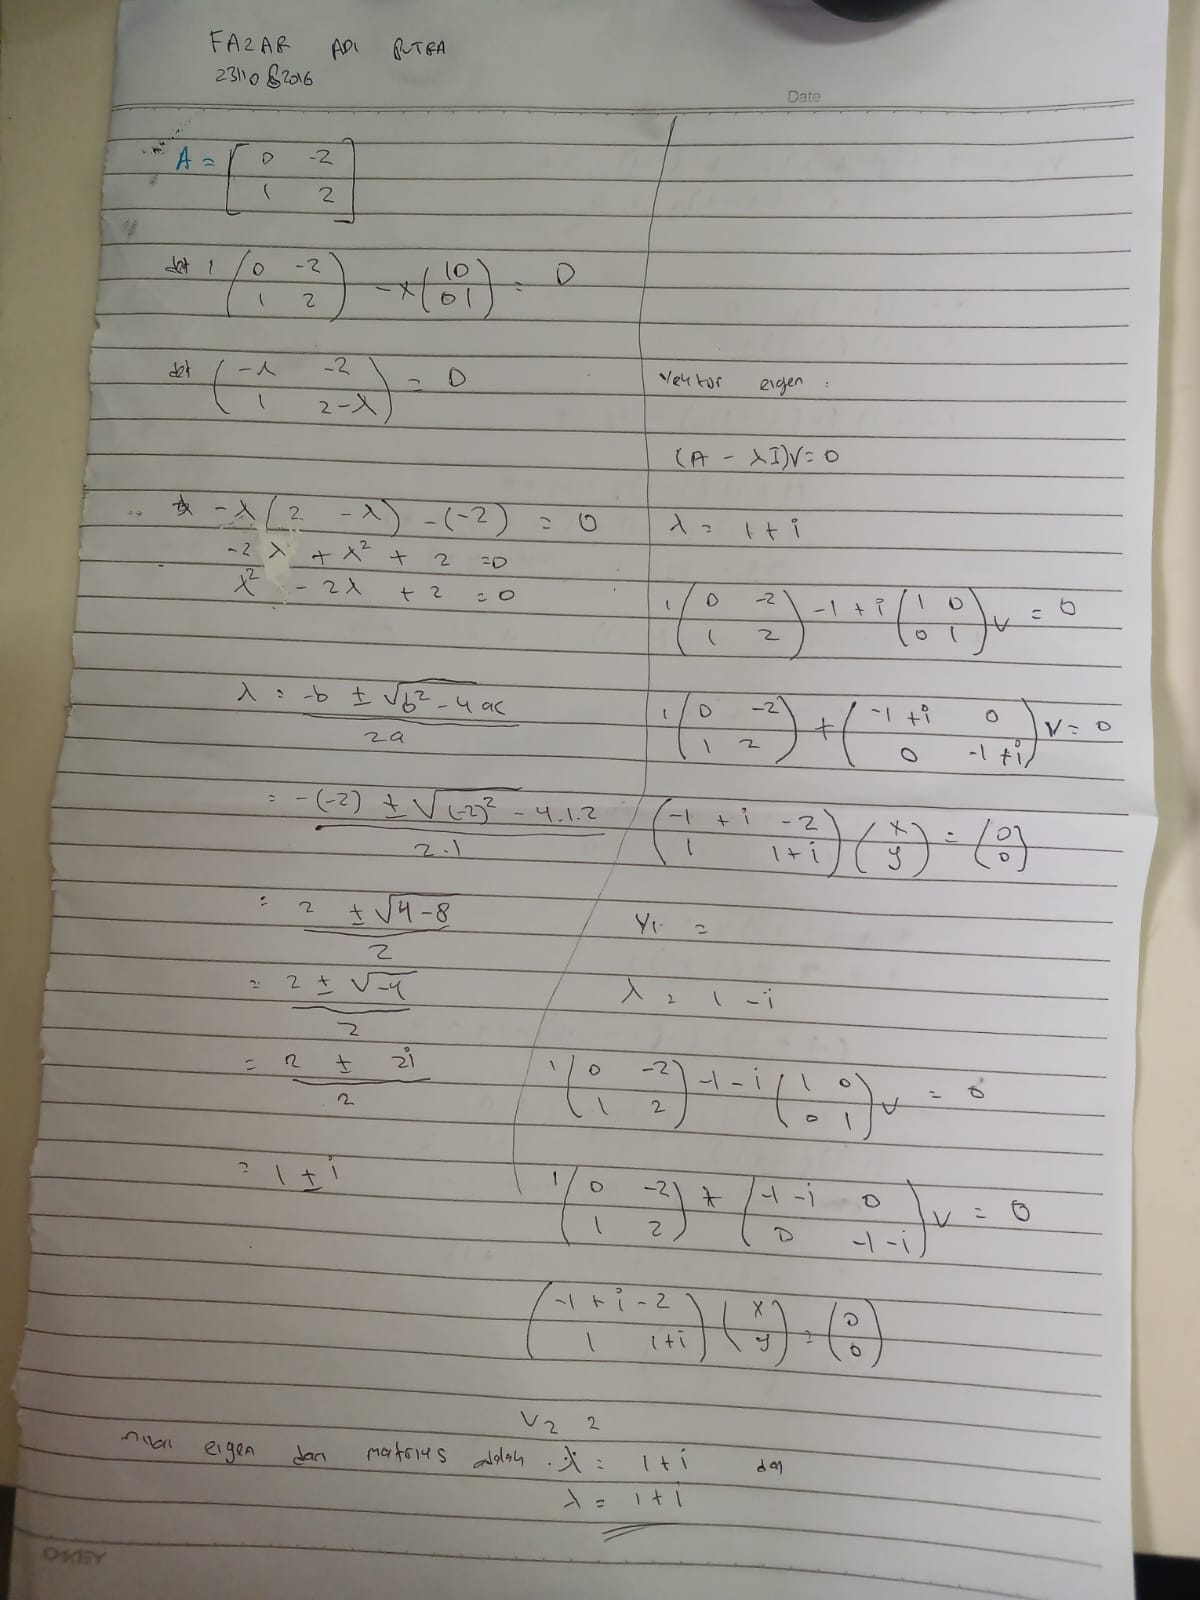 FAZAR ADI PUTRA
Date
A = [ 0 -2
1 2 ]
det ( 0 -2
1 2 ) -λ ( 1 0
0 1 ) = 0
det ( -λ -2
1 2-λ ) = 0
-λ ( 2 - λ ) - (-2) = 0
-2 λ + λ² + 2 = 0
λ² - 2λ + 2 = 0
λ = -b ± √b² - 4 ac
2a
= -(-2) ± √(-2)² - 4.1.2
2.1
= 2 ± √4-8
2
= 2 ± √-4
2
= 2 ± 2i
2
= 1 ± i
Vektor eigen :
(A - λI)V = 0
λ = 1 + i
( 0 -2
1 2 ) -1 + i ( 1 0
0 1 ) v = 0
( 0 -2
1 2 ) + ( -1 + i 0
0 -1 + i ) V = 0
( -1 + i -2
1 1+i ) ( x
y ) = ( 0
0 )
V1 =
λ = 1 - i
( 0 -2
1 2 ) -1 - i ( 1 0
0 1 ) v = 0
( 0 -2
1 2 ) + ( -1 - i 0
0 -1 - i ) v = 0
( -1 + i -2
1 1+i ) ( x
y ) = ( 0
0 )
V2 =
nilai eigen dari matriks adalah λ = 1 + i dan
λ = 1 + i
OKEY